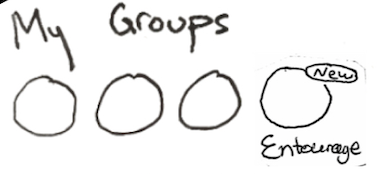 My Groups
New
Entourage